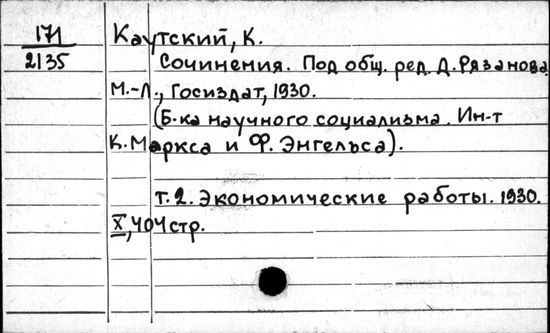 171
2135
Каутский, К.
Сочинения. Под общ. ред. Д. Рязанова
М.-Л., Госиздат, 1930.
(Б-ка научного социализма. Ин-т
К. Маркса и Ф. Энгельса).
т. 2. Экономические работы. 1930.
X, 404 стр.